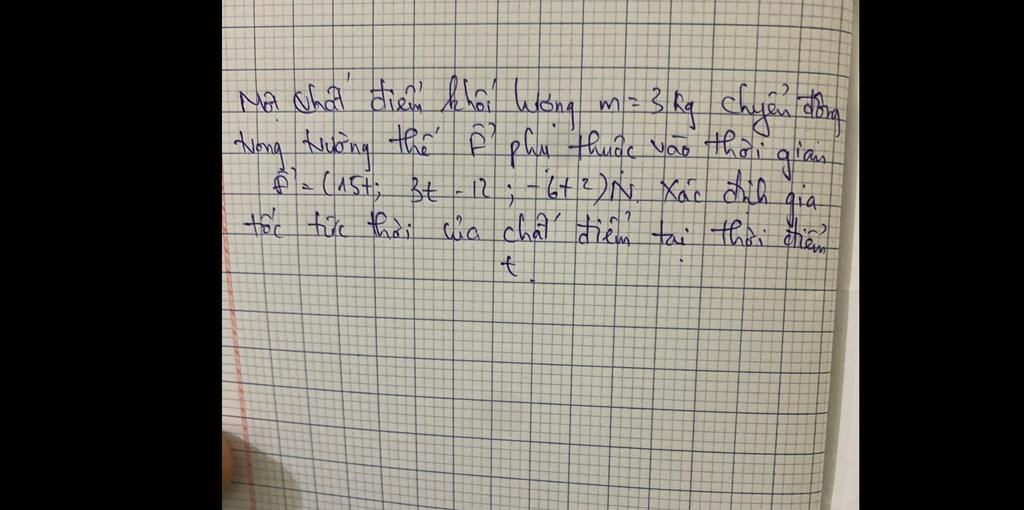 Một chất điểm khối lượng m = 3 kg chuyển động
trong trường thế F⃗ phụ thuộc vào thời gian
F⃗ = (15t; 3t - 12; -6t²)N. Xác định gia
tốc tức thời của chất điểm tại thời điểm
t.